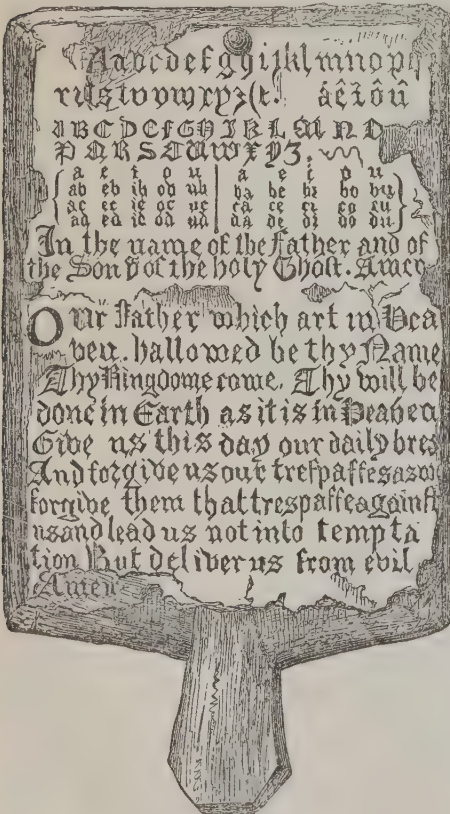 Aabcdefghijklmnop
rſstuvwxyz&. áêîôû
ABCDEFGHIKLMNO
PQRSTUWXYZ.
a e i o u a e i o u
ab eb ib ob ub ba be bi bo bu
ac ec ic oc uc ca ce ci co cu
ad ed id od ud da de di do du
In the name of the Father and of
the Son & of the holy Ghoſt. Amen
Our Father which art in Hea
ven. hallowed be thy Name
Thy Kingdome come. Thy will be
done in Earth as it is in Heaven
Give us this day our daily bre
And forgive us our treſpaſſes as we
forgive them that treſpaſſe againſt
us and lead us not into tempta
tion But deliver us from evil
Amen